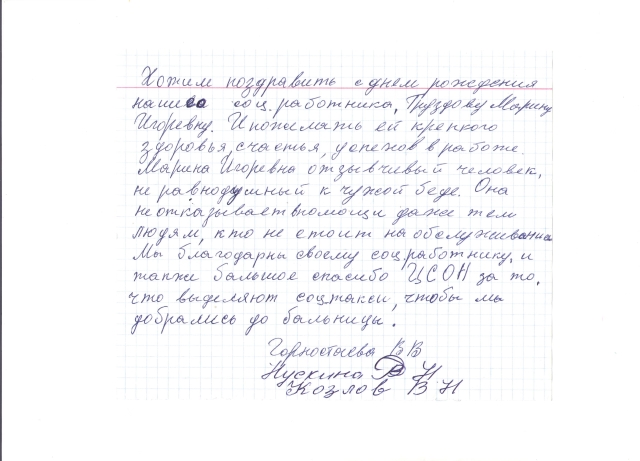 Хотим поздравить с днем рождения
нашего соц. работника, Груздову Марину
Игоревну. И пожелать ей крепкого
здоровья, счастья, успехов в работе.
Марина Игоревна отзывчивый человек,
не равнодушный к чужой беде. Она
не отказывает в помощи даже тем
людям, кто не стоит на обслуживании
Мы благодарны своему соц. работнику, и
также большое спасибо ЦСОН за то,
что выделяют соцтакси, чтобы мы
добрались до бальницы.
Горностаева В В
Н
Козлов В Н